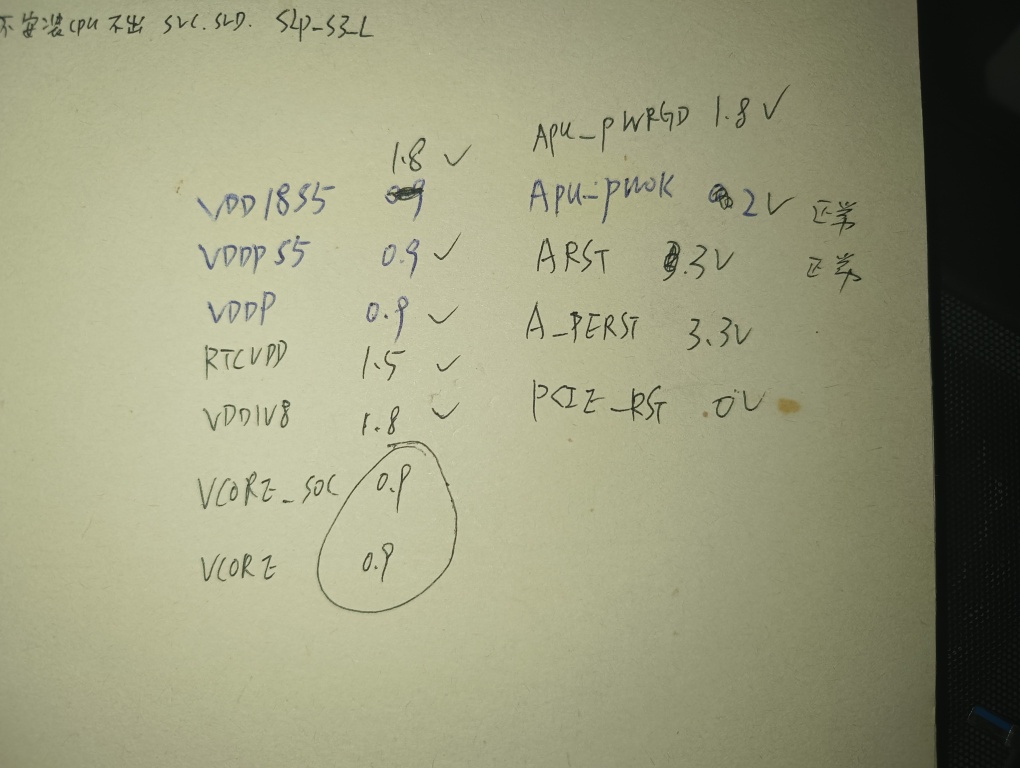 不安装cpu 不出 SVC.SVD. SLP-S3-L
1.8 ✓
VDD18S5
VDDPS5 0.9 ✓
VDDP 0.9 ✓
RTCVDD 1.5 ✓
VDD1V8 1.8 ✓
VCORE_SOC 0.9
VCORE 0.9
APU_PWRGD 1.8 ✓
APU-PWOK 2V 正常
ARST .3V 正常
A_PERST 3.3V
PCIE_RST .0V